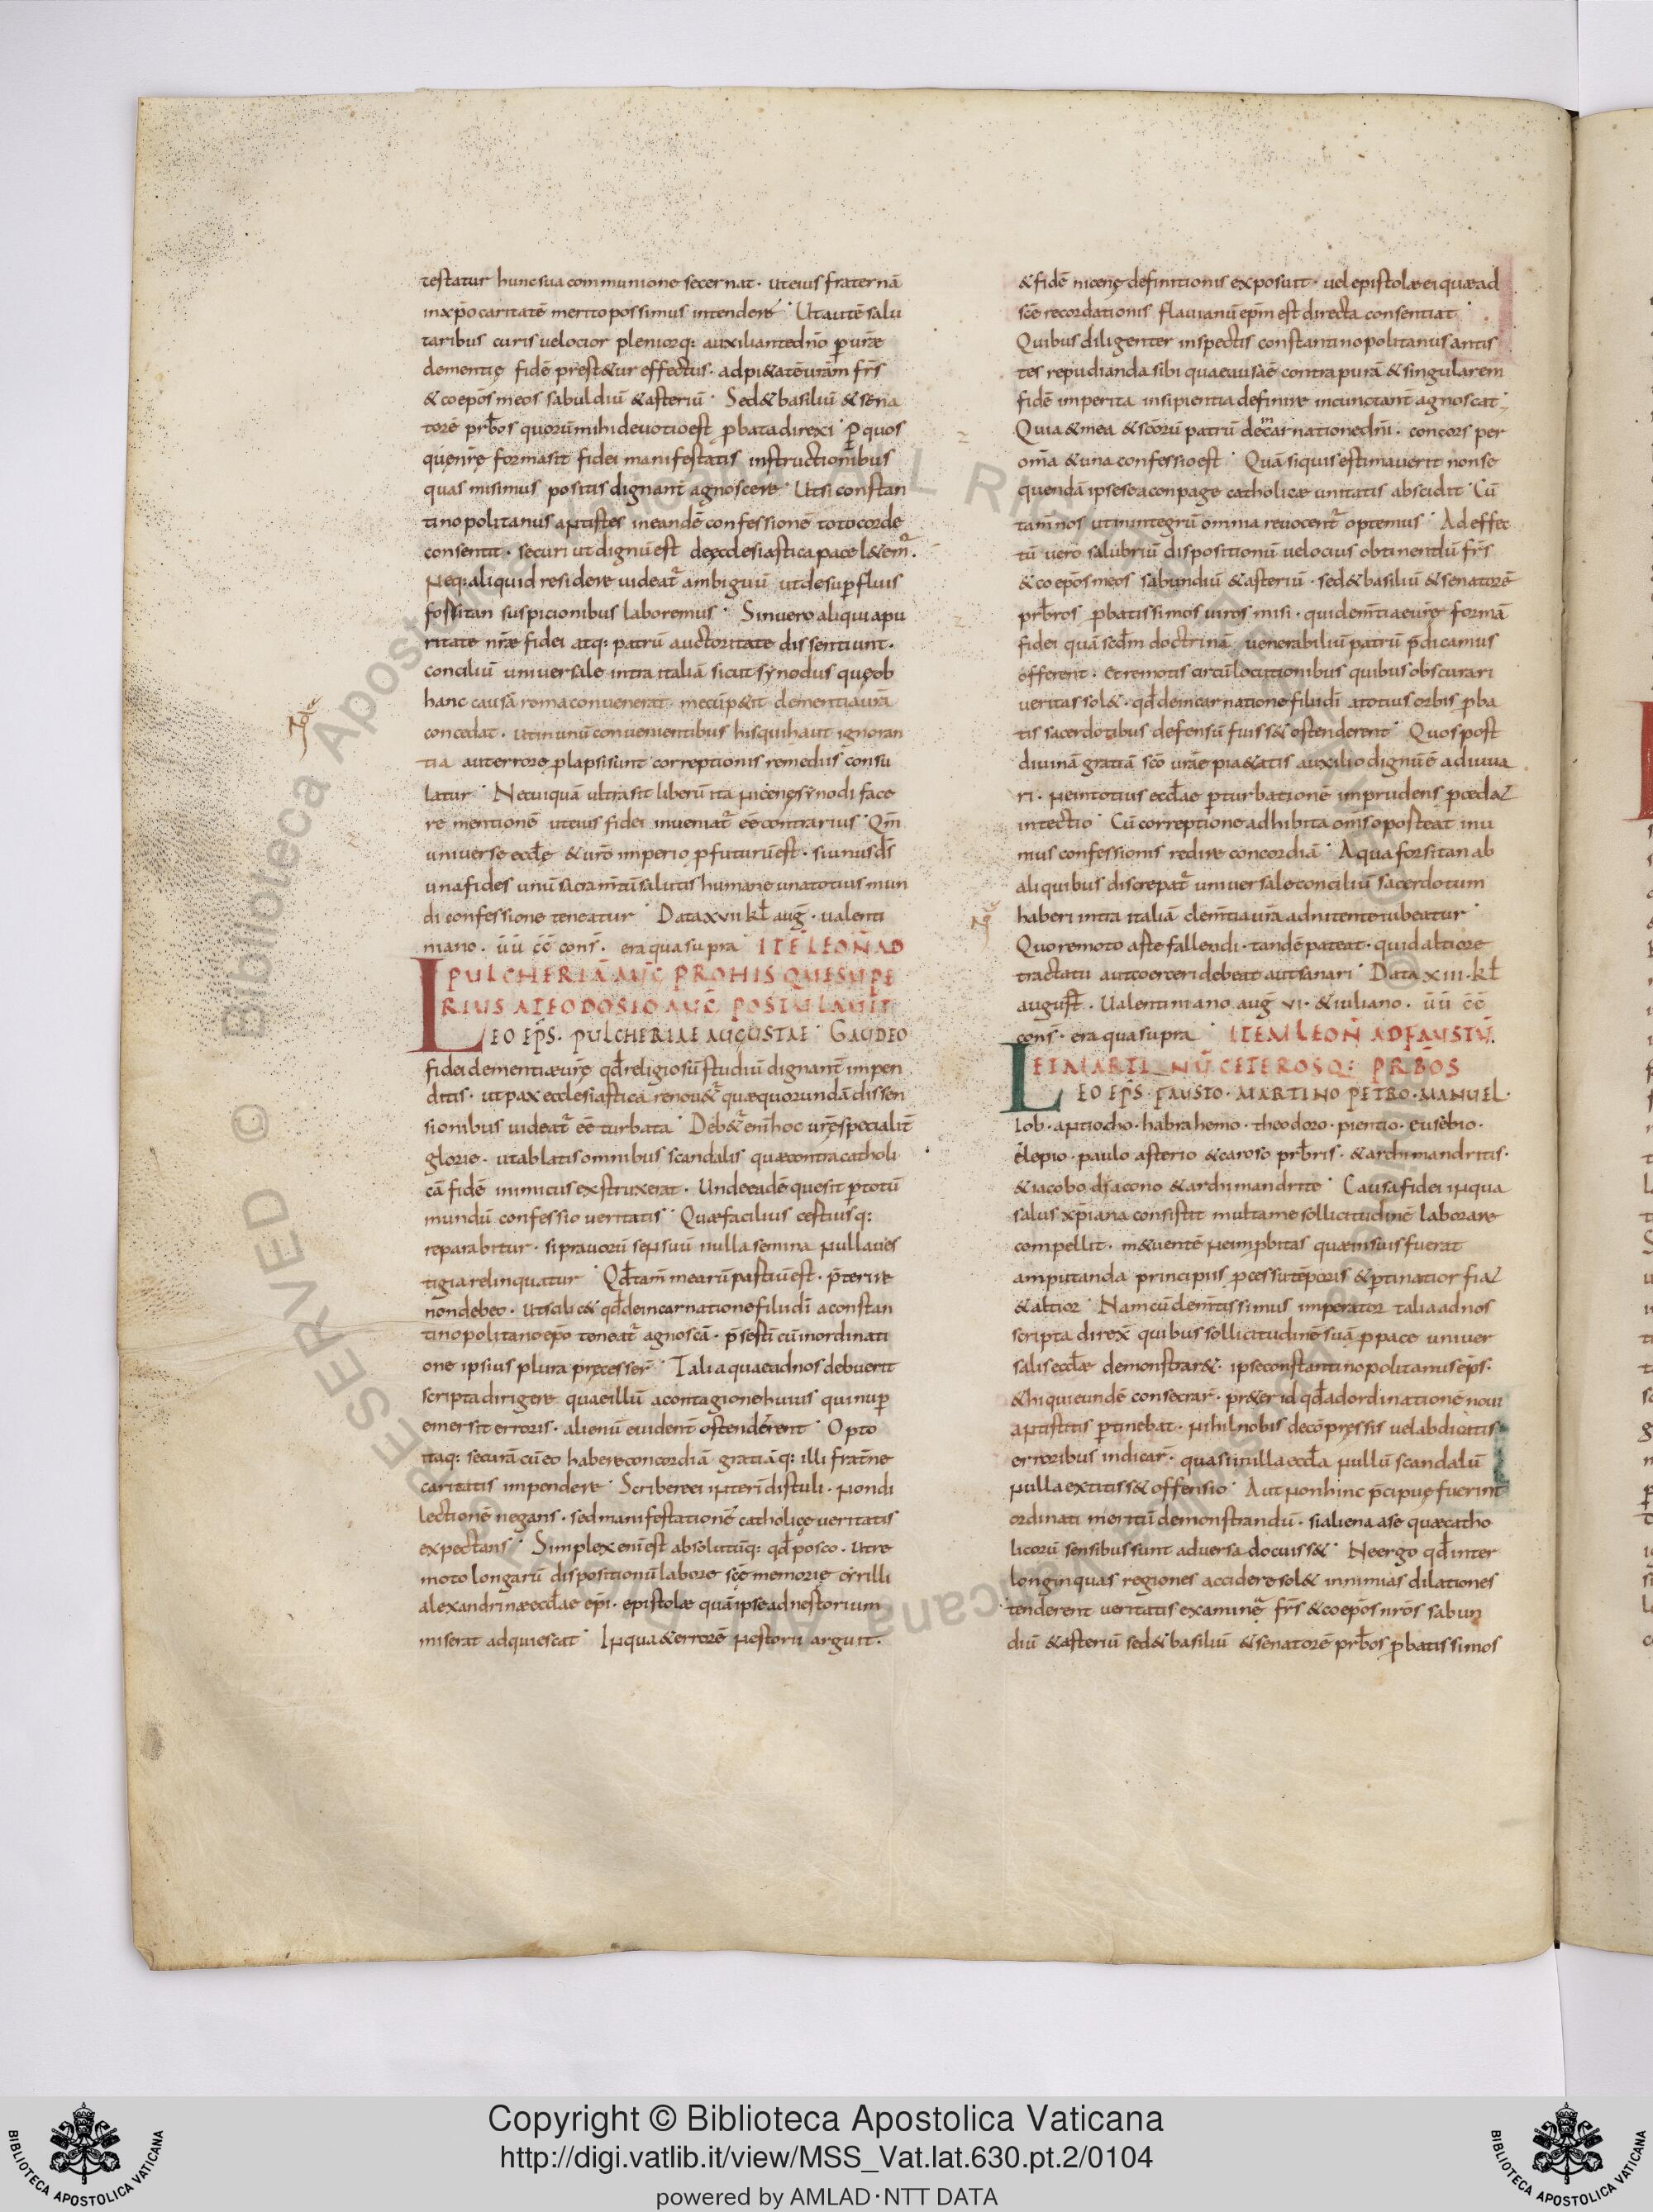 testatur hunc sua communione secernat · ut eius fraternā
in xp̄o caritatē merito possimus intendere · Ut autē salu
taribus curis uelocior pleniorq: auxiliante dn̄o p uræ
clementię fidē prest&ur effectus · ad pi&atē urām frs̄
& coepōs meos sabuldiū & asteriū · Sed & basiliū & sena
torē prb̄os quorū mihi deuotio est pbata direxi · P quos
que nrę forma sit fidei manifestatis instructionibus
quas misimus positis dignant̄ agnoscere · Ut si constan
tinopolitanus antistes in eandē confessionē toto corde
consentit · securi ut dignū est de ęcclesiastica pace l&em̄ ·
Neq: aliquid residere uideat̄ ambiguū ut de supfluis
forsitan suspicionibus laboremus · Sin uero aliqui a pu
ritate nr̄æ fidei atq: patrū auctoritate dissentiunt ·
conciliū uniuersale intra italiā sicut synodus quę ob
hanc causā romæ conuenerat · mecū p&it clementia ur̄a
concedat · ut in unū conuenientibus his qui haut ignoran
tia aut errore plapsi sunt correptionis remediis consu
latur · Nec uiquā ultra sit liberū ita nicenę synodi face
re mentionē ut eius fidei inueniat̄ eē contrarius · Qm̄
uniuerse eccl̄e & uro imperio pfuturū est · si unus ds̄
una fides unū sacram̄tū salutis humane una totius mun
di confessione teneatur · Data xvii kl̄ aug̅ · ualenti
niano · ūū c̄c̄ cons̄ · era qua supra · ITĒ LEON̄ AD
PULCHERIĀ AUC̄ PRO HIS QUE SUPE
RIUS A TEODOSIO AUC̄ POSTULAUIT
LEO EPS̄ · PULCHERIAE AUGUSTAE · GAUDEO
fidei clementiæ urę qd̄ religiosū studiū dignant̄ impen
ditis · ut pax ecclesiastica renou&̄ quæ quorundā dissen
sionibus uideat̄ eē turbata · Deb&̄ enī hoc urę specialit̄
glorie · ut ablatis omnibus scandalis quæ contra catholi
cā fidē inimicus exstruxerat · Unde eadē quesit p totū
mundū confessio ueritatis · Quæ facilius cestiusq:
reparabitur · si prauorū sensuū nulla semina nulla ues
tigia relinquatur · Qd̄ tam̄ mearū pastiū est · pterire
non debeo · ut scilic& qd̄ de incarnatione filii dī a constan
tinopolitano epo teneat̄ agnoscā · p sestī cū in ordinati
one ipsius plura pręcesser̄ · Talia quae ad nos debuerit
scripta dirigere quae illū a contagione huius qui nup
emersit erroris · alienū euident̄ ostenderent · Opto
itaq: securā cū eo habere concordiā gratiāq: illi frat̄ne
caritatis impendere · Scribere ei int̄eri distuli · non di
lectionē negans · sed manifestationē catholice ueritatis
expectans · Simplex enī est absolutūq: qd̄ posco · ut re
moto longarū dispositionū labore scę memorię cyrilli
alexandrinæ eccl̄ae epī · epistolæ quā ipse ad nestorium
miserat adquiescat · In qua & errorē nestorii arguit ·
& fidē nicenę definitionis exposuit · uel epistolæ ei quæ ad
scē recordationis flauianū epm̄ est directa consentiat ·
Quibus diligenter inspectis constantinopolitanus antis
tes repudianda sibi quae eausāē contra purā & singularem
fidē imperita insipientia definire incunctant̄ agnoscat ·
Quia & mea & scōrū patrū de incarnatione dn̄i · concors per
om̄a & una confessio est · Quā si quis estimauerit non se
quendā ipse se a conpage catholicæ unitatis abscidit · Cū
tam̄ nos ut in integrū omnia reuocent̄ optemus · Ad effec
tū uero salubriū dispositionū uelocius obtinendū frs̄
& coepōs meos sabundiū & asteriū · sed & basiliū & senatorē
prb̄ros pbatissimos uiros misi · qui clem̄tiae urę formā
fidei quā sedm̄ doctrinā uenerabiliū patrū pdicamus
offerent · et remotis circūlocutionibus quibus obscurari
ueritas sol& · qd̄ de incarnatione filii dī a totius orbis pba
tis sacerdotibus defensū fuiss& ostenderent · Quos post
diuinā gratiā sco uræ pia&atis auxilio dignū ē adiuua
ri · Ne in totius eccl̄ae pturbationē imprudens pcedat
intectio · Cū correptione adhibita om̄s oposteat inu
nius confessionis redire concordiā · A qua forsitan ab
aliquibus discrepat̄ uniuersale conciliū sacerdotum
haberi intra italiā clem̄tia ur̄a adnitente iubeatur ·
Quo remoto aste fallendi · tandē pateat · quid altiore
tractatu aut coerceri debeat aut sanari · Data xiii · kl̄
august̄ · Ualentiniano aug̅ vi · & iuliano · ūū c̄c̄
cons̄ · era qua supra · ITEM LEON̄ AD FAUSTŪ
ET MARTINŪ CETEROSQ: PRB̄OS
LEO EPS̄ · FAUSTO · MARTINO PETRO · MANUEL ·
Iob · antiocho · habrahemo · theodoro · pientio · eusebio ·
elepio · paulo asterio & caroso prb̄ris · & archimandritis ·
& iacobo diacono & archimandrite · Causa fidei in qua
salus xp̄iana consistit multa me sollicitudinē laborare
compellit · m&uentē ne inpbitas quæ in suis fuerat
amputanda principiis pcessu tēporis & ptinatior fiat
& altior · Nam cū clem̄tissimus imperator talia ad nos
scripta direx̄ quibus sollicitudinē suā p pace uniuer
salis eccl̄æ demonstrar& · ipse constantinopolitanus eps̄ ·
& hi qui eundē consecrar̄ · pr&er id qd̄ ad ordinationē noui
antistitis ptinebat · nihil nobis de cōpręssis uel abdicatis
erroribus indicar̄ · quasi in illa eccl̄a nullū scandalū
nulla extitiss& offensio · Aut non hinc pcipuę fuerint
ordinati meritū demonstrandū · si aliena a se quæ catho
licorū sensibus sunt aduersa docuiss& · Ne ergo qd̄ inter
longinquas regiones accidere sol& in nimias dilationes
tenderent ueritatis examinę frs̄ & coepōs nrōs sabun
diū & asteriū sed & basiliū & senatorē prb̄os pbatissimos
Copyright © Biblioteca Apostolica Vaticana
http://digi.vatlib.it/view/MSS_Vat.lat.630.pt.2/0104
powered by AMLAD·NTT DATA
BIBLIOTECA APOSTOLICA VATICANA
BIBLIOTECA APOSTOLICA VATICANA